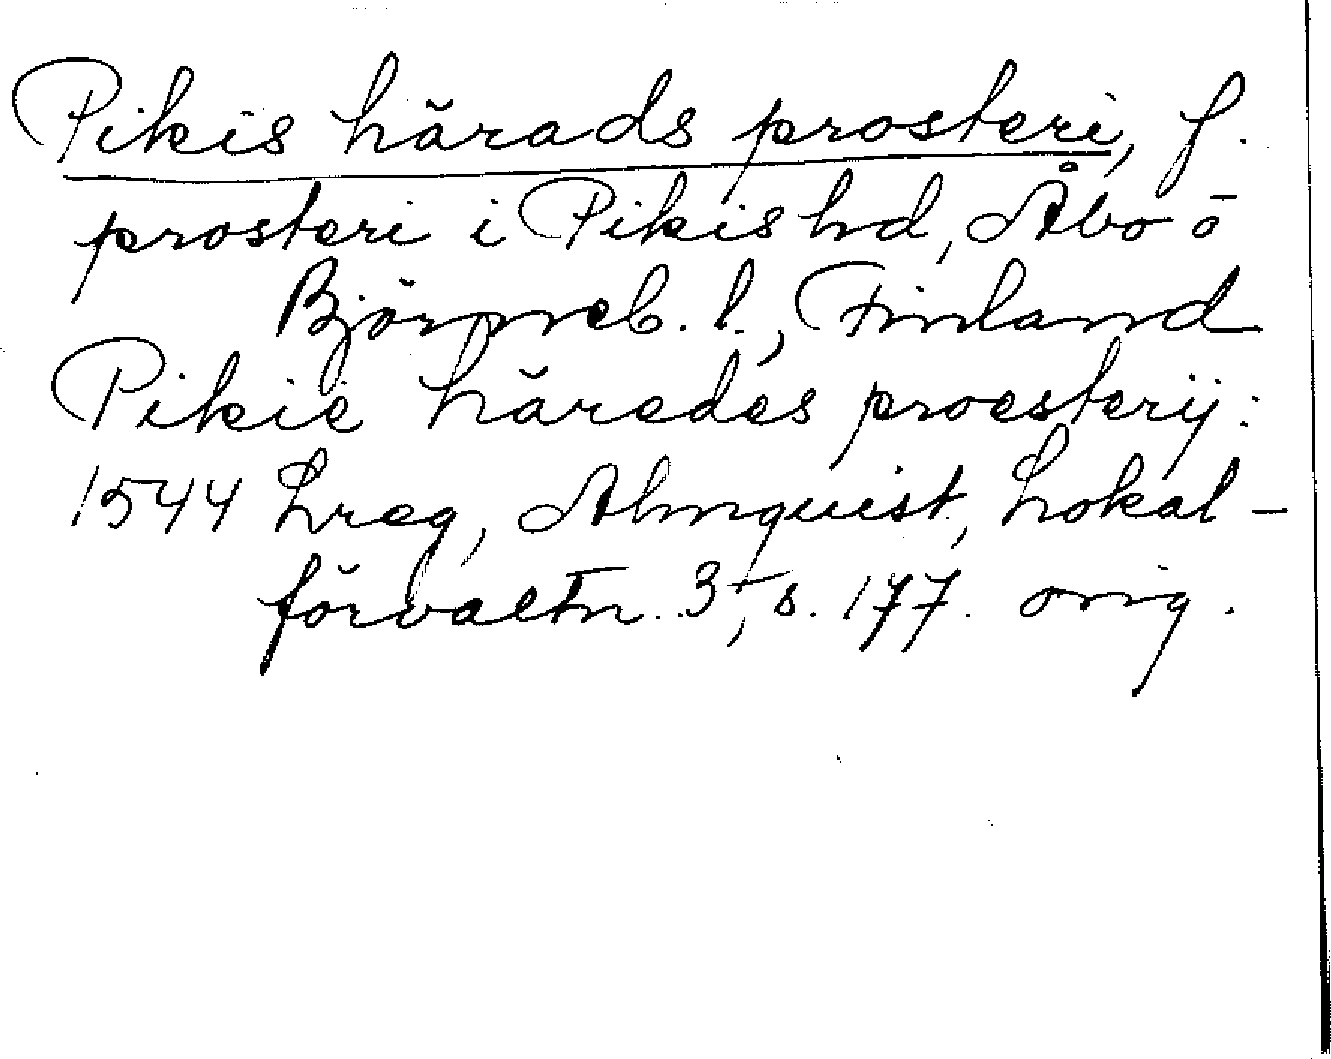 Pikis härads prosteri, f.
prosteri i Pikis hd, Åbo o
Björneb. l., Finland
Pikie häredes proesterij:
1544 Lreg, Almquist, Lokal-
förvaltn. 3, s. 177. orig.